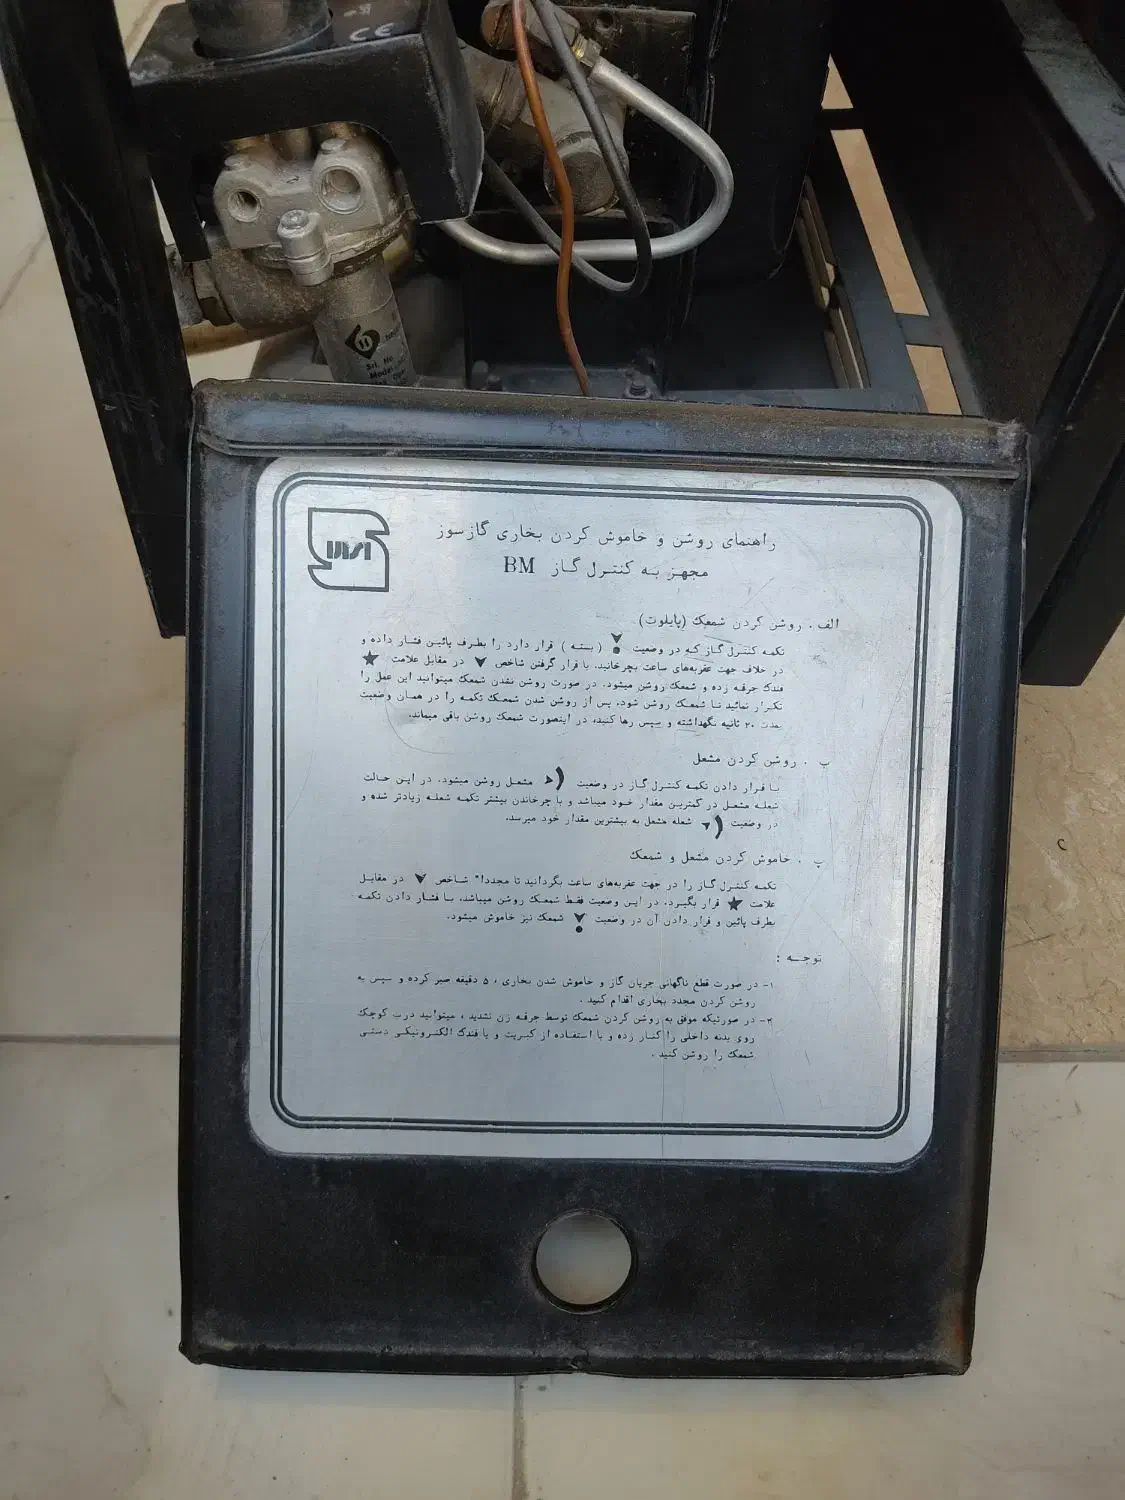 CE
Srl. No
Model
راهنمای روشن و خاموش کردن بخاری گازسوز
مجهز به کنترل گاز BM
الف . روشن کردن شمعک (پایلوت)
تکمه کنترل گاز که در وضعیت ( بسته ) قرار دارد را بطرف پائین فشار داده و
در خلاف جهت عقربه‌های ساعت بچرخانید. با قرار گرفتن شاخص در مقابل علامت ★
فندک جرقه زده و شمعک روشن میشود. در صورت روشن نشدن شمعک میتوانید این عمل را
تکرار نمائید تا شمعک روشن شود. پس از روشن شدن شمعک تکمه را در همان وضعیت
بمدت ۲۰ ثانیه نگهداشته و سپس رها کنید، در اینصورت شمعک روشن باقی میماند.
ب . روشن کردن مشعل
با قرار دادن تکمه کنترل گاز در وضعیت مشعل روشن میشود. در این حالت
شعله مشعل در کمترین مقدار خود میباشد و با چرخاندن بیشتر تکمه شعله زیادتر شده و
در وضعیت شعله مشعل به بیشترین مقدار خود میرسد.
پ . خاموش کردن مشعل و شمعک
تکمه کنترل گاز را در جهت عقربه‌های ساعت بگردانید تا مجددا" شاخص در مقابل
علامت ★ قرار بگیرد. در این وضعیت فقط شمعک روشن میباشد. با فشار دادن تکمه
بطرف پائین و قرار دادن آن در وضعیت شمعک نیز خاموش میشود.
توجه :
۱- در صورت قطع ناگهانی جریان گاز و خاموش شدن بخاری ، ۵ دقیقه صبر کرده و سپس به
روشن کردن مجدد بخاری اقدام کنید .
۲- در صورتیکه موفق به روشن کردن شمعک توسط جرقه زن نشدید ، میتوانید درب کوچک
روی بدنه داخلی را کنار زده و با استفاده از کبریت و یا فندک الکترونیکی دستی
شمعک را روشن کنید .